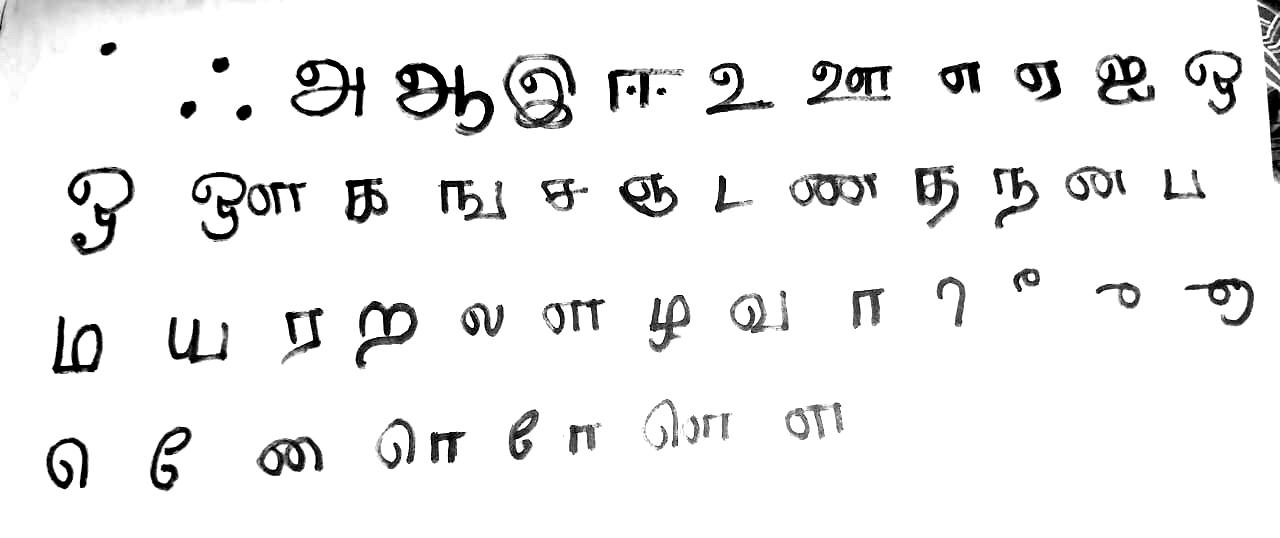 ஃ அ ஆ இ ஈ உ ஊ எ ஏ ஐ ஒ
ஓ ஔ க ங ச ஞ ட ண த ந ன ப
ம ய ர ற ல ள ழ வ ா ி ீ ு ூ
ெ ே ை ொ ோ ௌ ள